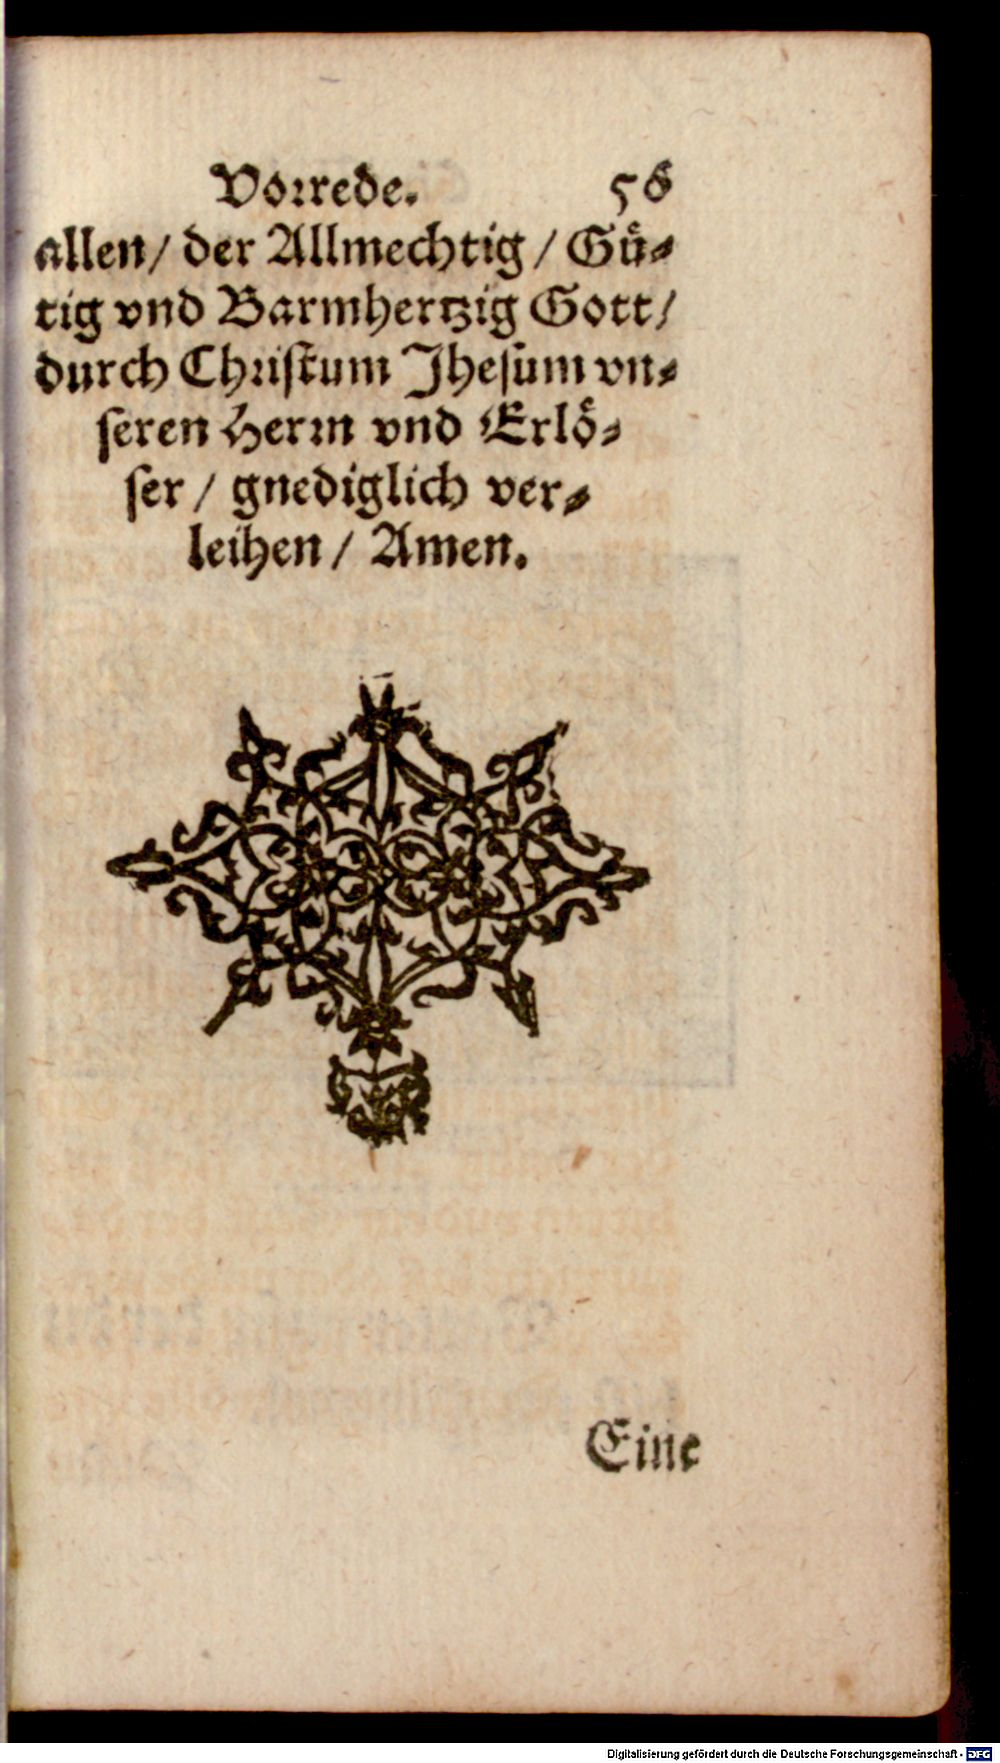 Vorrede. 56
allen/ der Allmechtig/ Guͤ-
tig vnd Barmhertzig Gott/
durch Christum Jhesum vn-
seren Herrn vnd Erloͤ-
ser/ gnediglich ver-
leihen/ Amen.
Eine
Digitalisierung gefördert durch die Deutsche Forschungsgemeinschaft - DFG